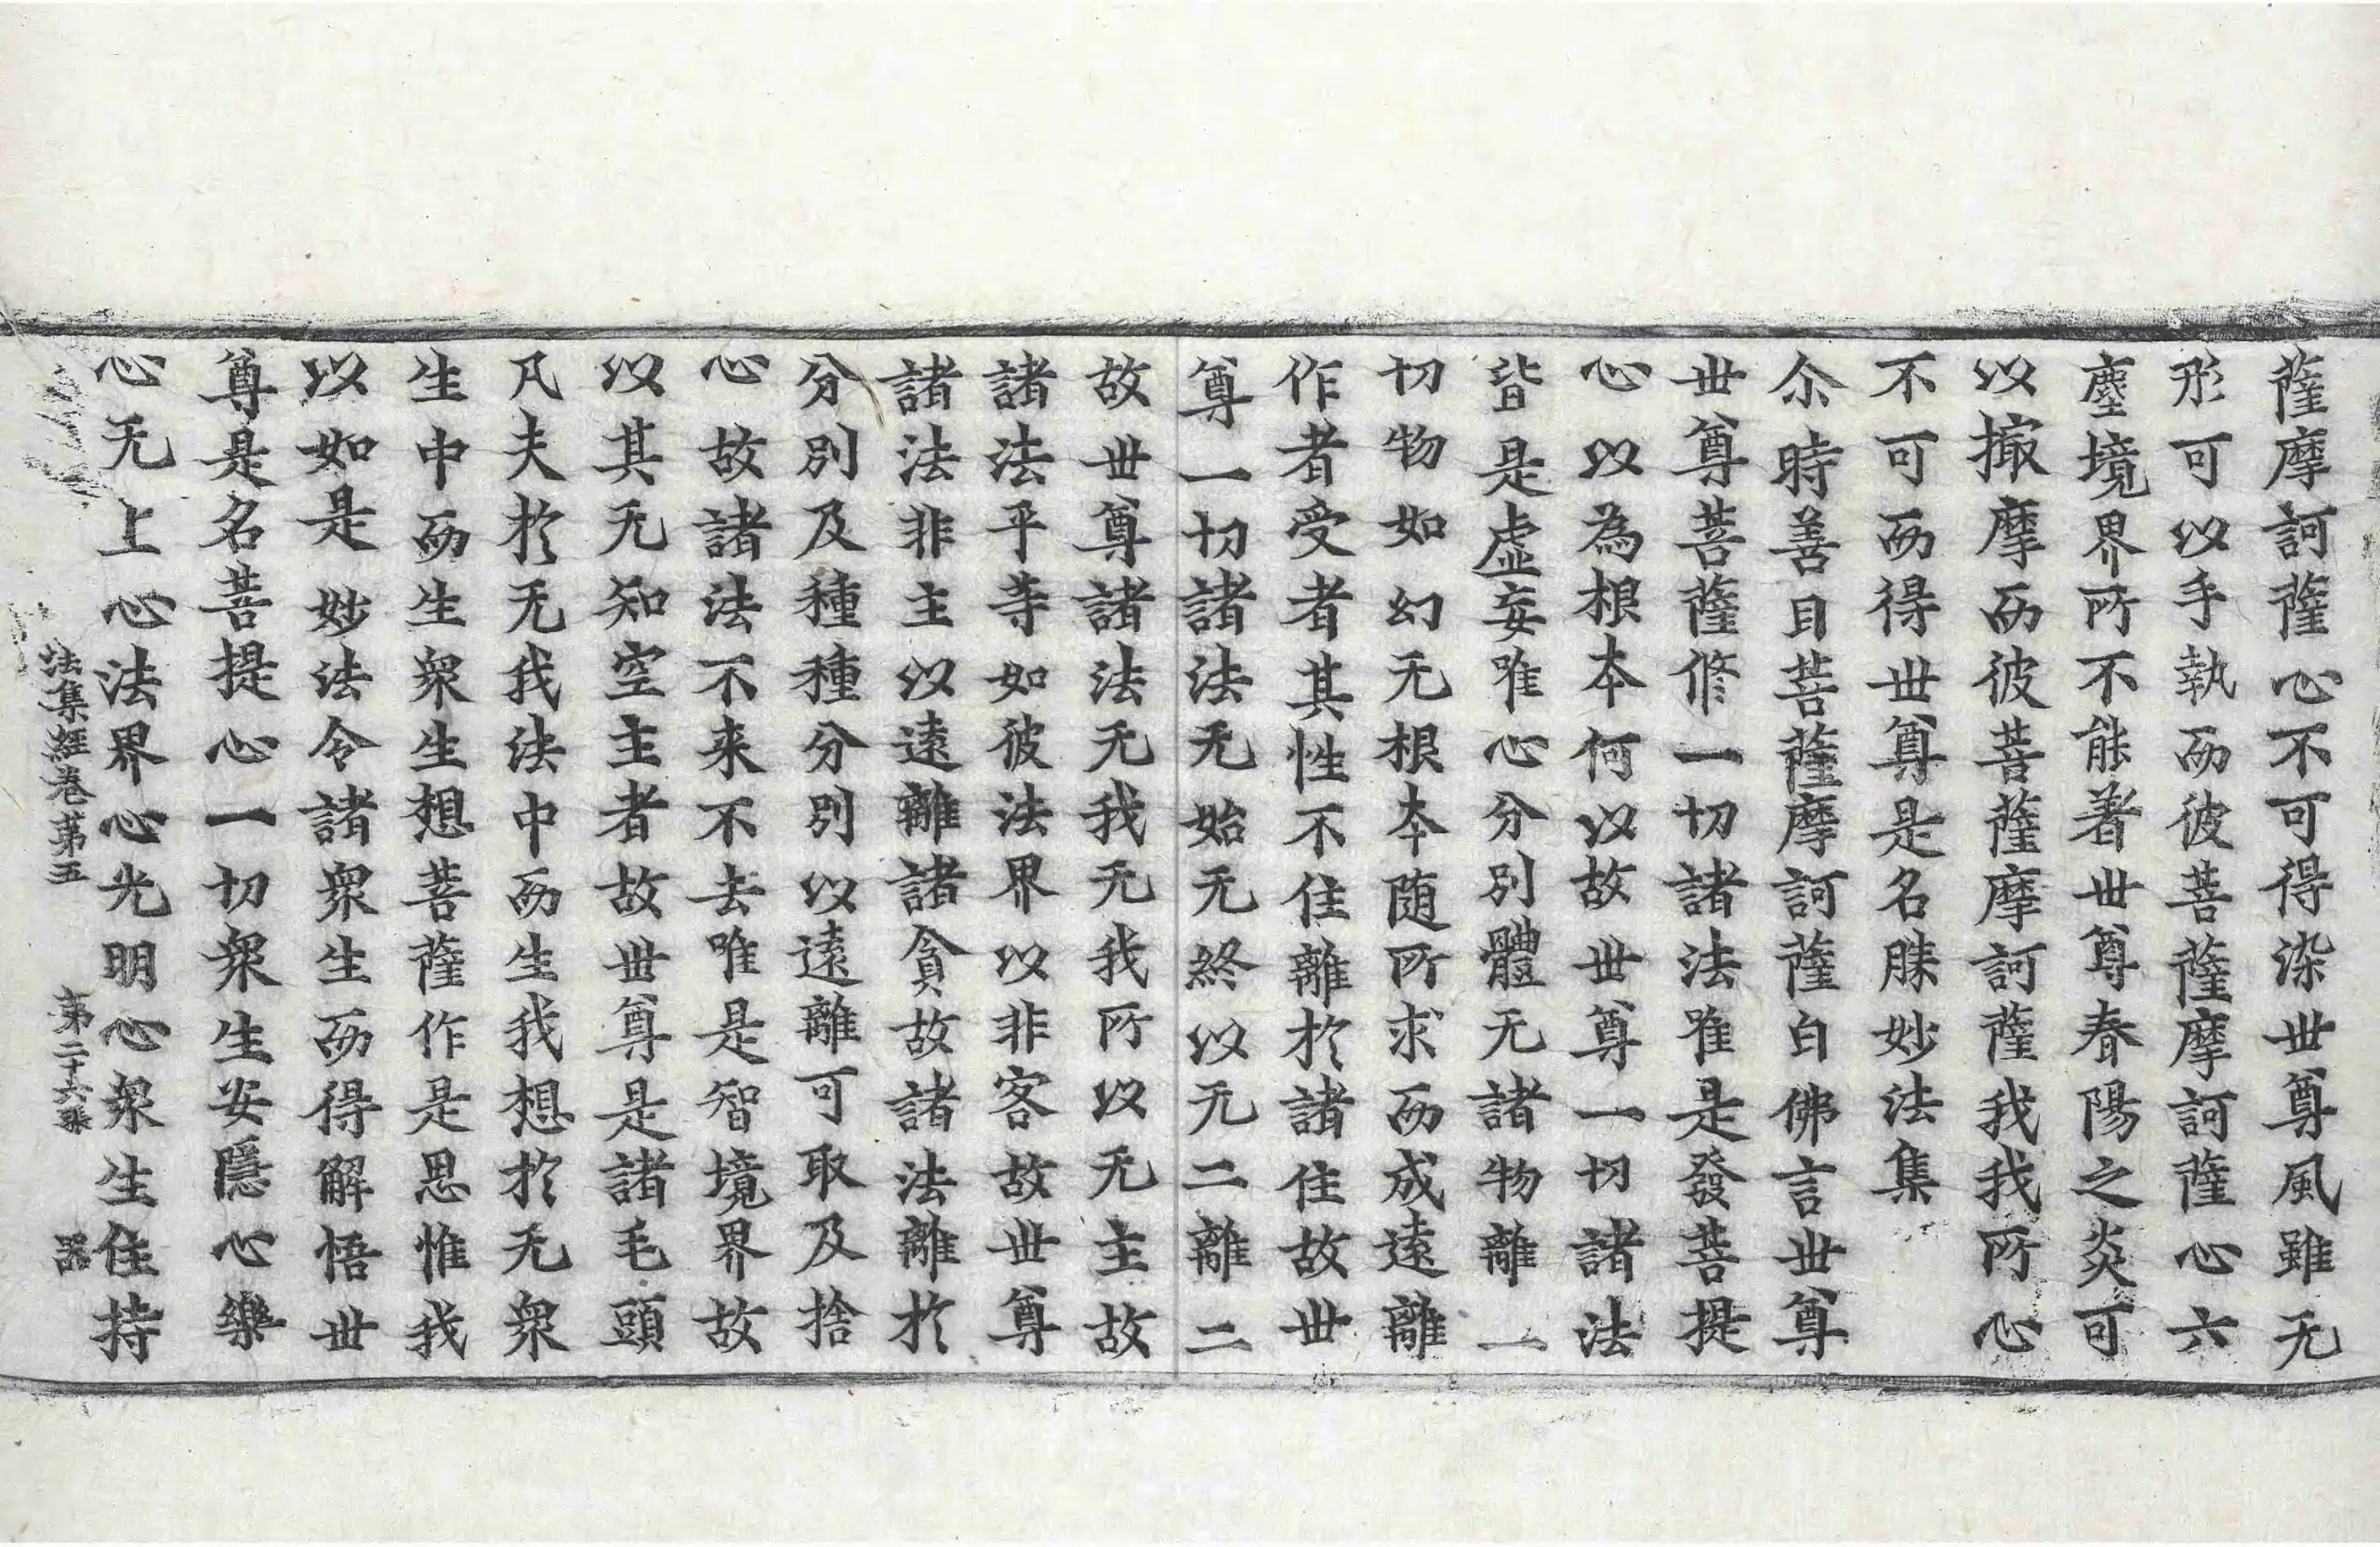 薩摩訶薩心不可得染世尊風雖无
形可以手執而彼菩薩摩訶薩心六
塵境界所不能著世尊春陽之炎可
以撮摩而彼菩薩摩訶薩我我所心
不可而得世尊是名勝妙法集
尒時善目菩薩摩訶薩白佛言世尊
世尊菩薩修一切諸法唯是發菩提
心以為根本何以故世尊一切諸法
皆是虛妄唯心分別體无諸物離一
切物如幻无根本随所求而成遠離
作者受者其性不住離於諸住故世
尊一切諸法无始无終以无二離二
故世尊諸法无我无我所以无主故
諸法平等如彼法界以非客故世尊
諸法非主以遠離諸貪故諸法離於
分別及種種分別以遠離可取及捨
心故諸法不来不去唯是智境界故
以其无知空主者故世尊是諸毛頭
凡夫於无我法中而生我想於无衆
生中而生衆生想菩薩作是思惟我
以如是妙法令諸衆生而得解悟世
尊是名菩提心一切衆生安隱心樂
心无上心法界心光明心衆生住持
法集經卷苐五 苐二十六張 器